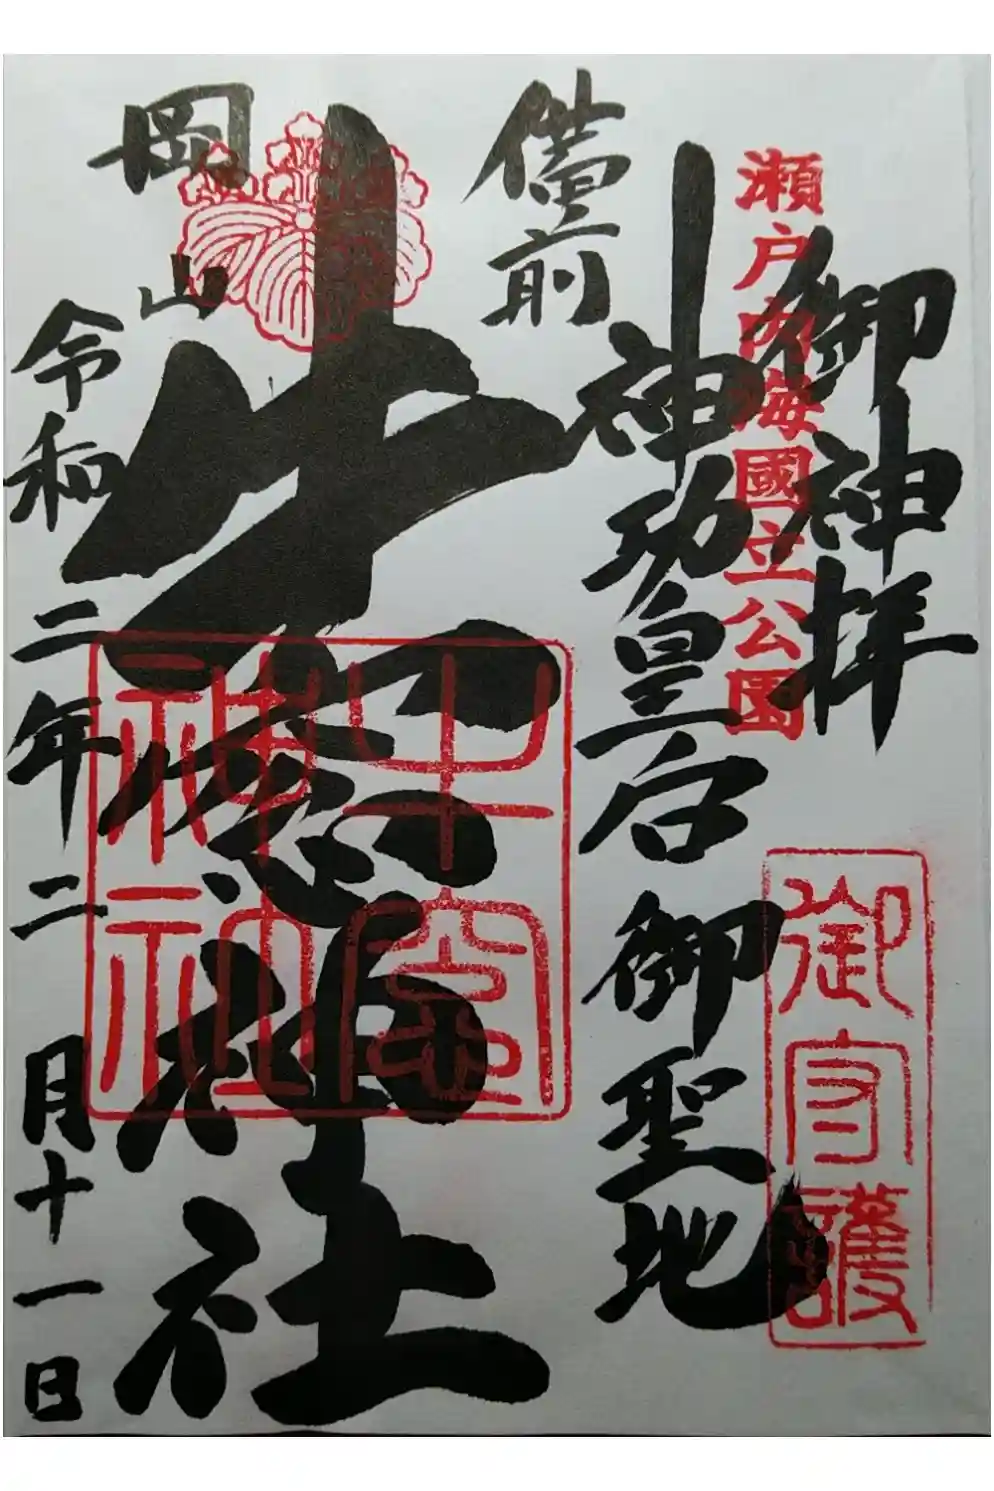 瀬戸内海國立公園
御神拝
神功皇后御聖地
備前
牛窓神社
岡山
令和二年二月十一日
牛窓
神社
御守護